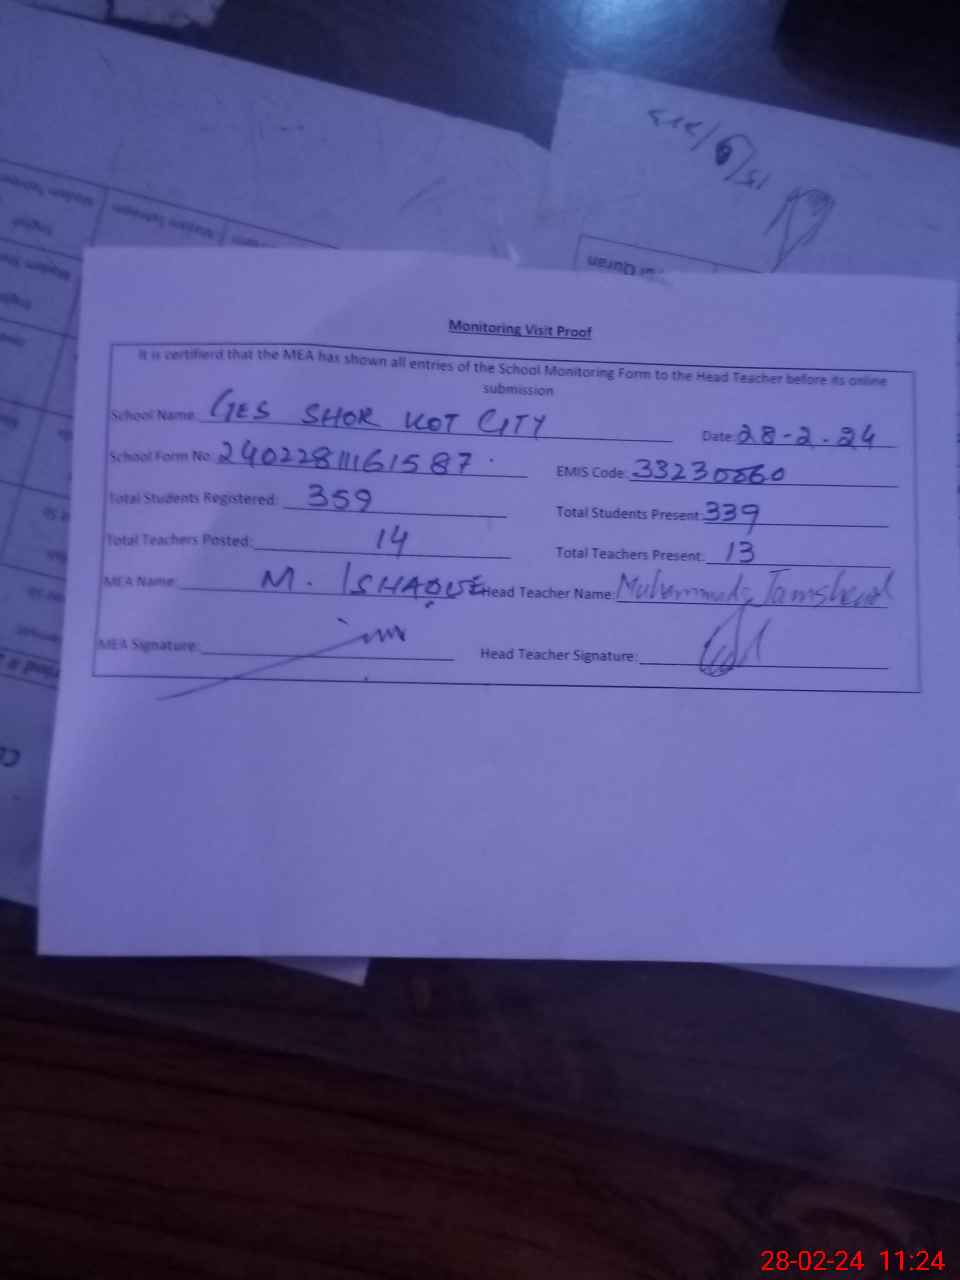 Monitoring Visit Proof
It is certifierd that the MEA has shown all entries of the School Monitoring Form to the Head Teacher before its online
submission
School Name: GES SHOR KOT CITY Date: 28-2-24
School Form No: 24022811161587 EMIS Code: 33230060
Total Students Registered: 359 Total Students Present: 339
Total Teachers Posted: 14 Total Teachers Present: 13
MEA Name: M. ISHAQUE Head Teacher Name: Jamshed
MEA Signature: Head Teacher Signature:
28-02-24 11:24